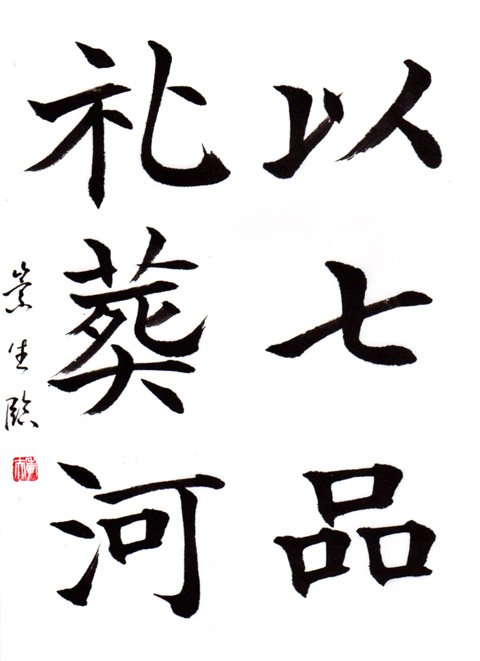 以七品
礼葬河
崇生臨